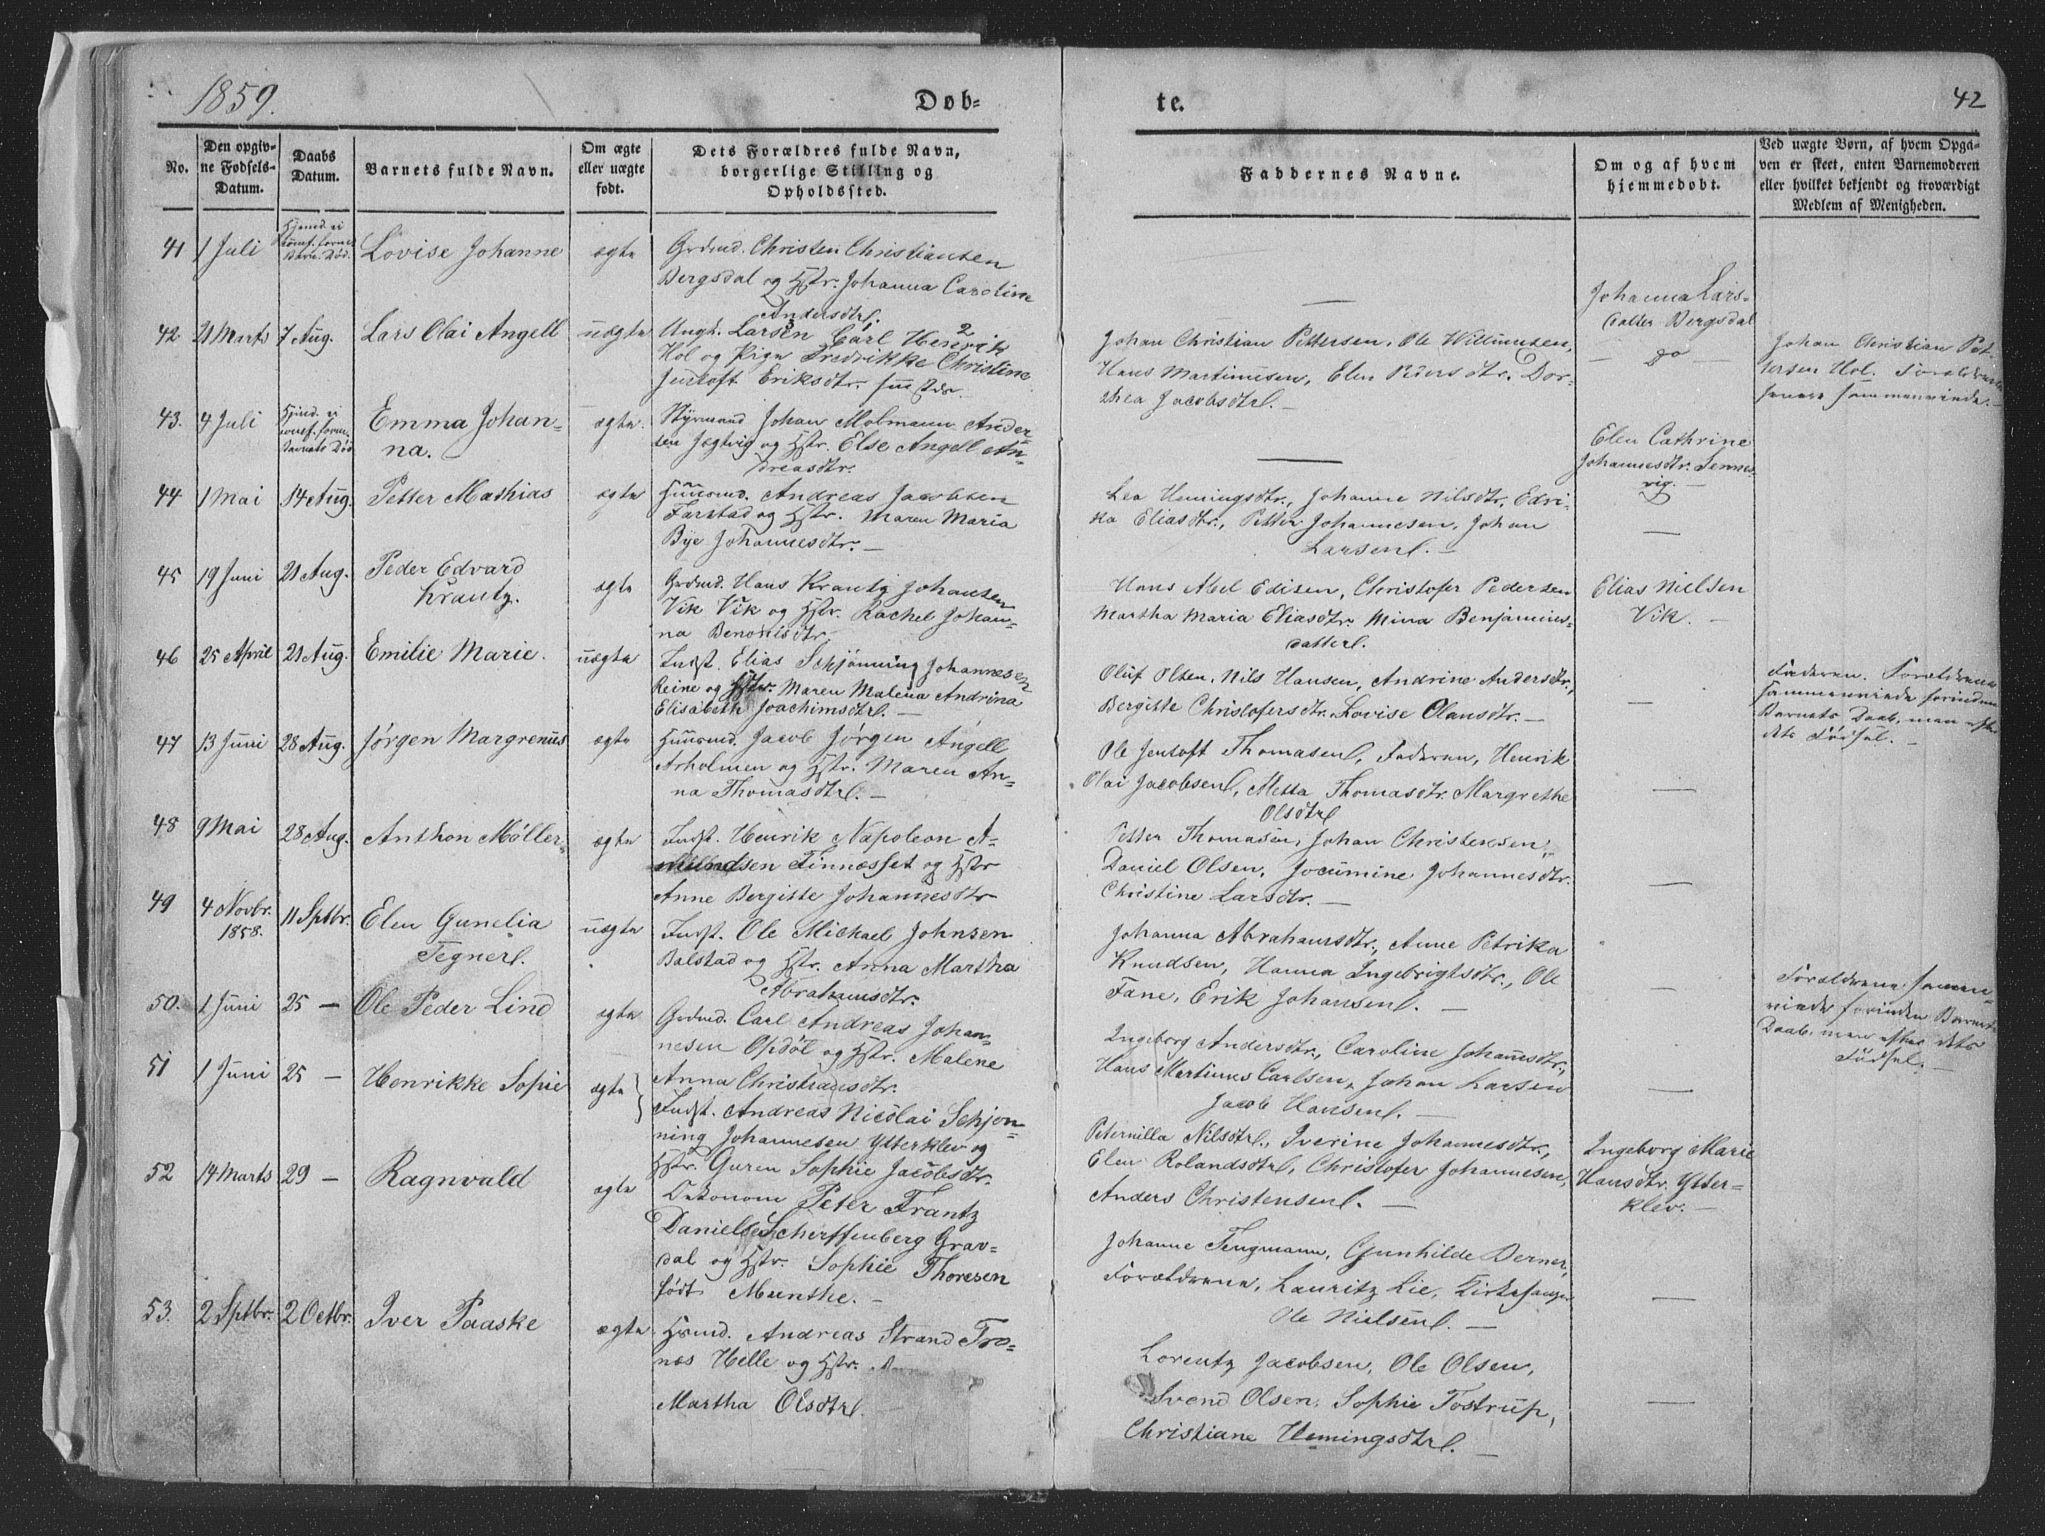 1859.
Døb-
te.
42
No.
Den opgiv-
ne Fødsels-
Datum.
Daabs
Datum.
Barnets fulde Navn.
Om ægte
eller uægte
født.
Dets Forældres fulde Navn,
borgerlige Stilling og
Opholdssted.
Faddernes Navne.
Om og af hvem
hjemmedøbt.
Ved uægte Børn, af hvem Opga-
ven er skeet, enten Barnemoderen
eller hvilket bekjendt og troværdigt
Medlem af Menigheden.
41
1 Juli
Hjemd. ei
Død.
Lovise Johanne
ægte
Grdmd. Christen Christiansen
Bergsdal og Hstr. Johanna Caroline
Andersdtr.
—
Johanna Lars-
datter Bergsdal
42
21 Marts
7 Aug.
Lars Olai Angell
uægte
Ungk. Larsen Carl Henrik
Hol og Pige Fredrikke Christine
Jentoft Eriksdtr.
Johan Christian Pettersen, Ole Willumsen,
Hans Martinusen, Elen Pedersdtr. Dor-
thea Jacobsdtr.
— do —
Johan Christian Pet-
tersen Hol. Forældrene
senere sammenviede.
43.
4 Juli
Hjemd. ei
conf. form.
Barnets Død
Emma Johan-
na.
ægte
Styrmand Johan Molmann Ander-
sen Jægtvig og Hstr. Else Angell An-
dreasdtr.
—
Elen Cathrine
Johannesdtr. Sennes-
vig.
44
1 Mai
14 Aug.
Petter Mathias
ægte
Huusmd. Andreas Jacobsen
Farstad og Hstr. Maren Maria
Bye Johannesdtr. —
Lea Hemingsdtr., Johanne Nilsdtr, Edri-
ka Eliasdtr., Petter Johannesen, Johan
Larsen. —
—
45
19 Juni
21 Aug.
Peder Edvard
Krantz.
ægte
Grdmd. Hans Krantz Johansen
Vik Vik og Hstr. Rachel Johan-
na Benonisdtr.
Hans Abel Edisen, Christofer Pedersen
Martha Maria Eliasdtr. Mina Benjamins-
datter.
Elias Nielsen
Vik. —
46
25 April
21 Aug.
Emilie Marie.
uægte
Indst. Elias Schjønning Johannesen
Reine og Hstr. Maren Malena Andrina
Elisabeth Joachimsdtr. —
Oluf Olsen, Nils Hansen, Andrine Andersdtr.,
Bergitte Christofersdtr. Lovise Olausdtr. —
—
Faderen. Forældrene
sammenviede forinden
Barnets Daab, men efter
dets Fødsel. —
47
13 Juni
28 Aug.
Jørgen Margrenus
ægte
Huusmd. Jacob Jørgen Angell
Arholmen og Hstr. Maren An-
na Thomasdtr. —
Ole Jentoft Thomasen, Faderen, Henrik
Olai Jacobsen, Metta Thomasdtr. Margrethe
Olsdtr
—
48
9 Mai
28 Aug.
Anthon Møller
ægte
Indst. Henrik Napoleon A-
mundsen Finnæsset og Hstr
Anne Bergitte Johannesdtr
Petter Thomasen, Johan Christensen,
Daniel Olsen, Jocumine Johannesdtr.
Christine Larsdtr. —
—
49
4 Novbr.
1858.
11 Sptbr.
Elen Gunelia
Tegner.
uægte
Indst. Ole Michael Johnsen
Balstad og Hstr. Anna Martha
Abrahamsdtr.
Johanna Abrahamsdtr., Anne Petrika
Knudsen, Hanna Ingebrigtsdtr., Ole
Fane, Erik Johansen. —
—
Forældrene sammen-
viede forinden Barnets
Daab, men efter dets
Fødsel. —
50.
1 Juni
25 —
Ole Peder Lind
ægte
Grdmd. Carl Andreas Johan-
nesen Opdøl og Hstr. Malene
Anna Christiansdtr.
Ingeborg Andersdtr., Caroline Johansdtr.,
Hans Martinus Carlsen, Johan Larsen
Jacob Hansen. —
—
51
1 Juni
25 —
Henrikke Sopie
ægte
Indst. Andreas Nicolai Schjøn-
ning Johannesen Ytterklev og
Hstr. Guren Sophie Jacobsdtr.
Peternilla Nilsdtr., Iverine Johannesdtr.,
Elen Rolandsdtr., Christofer Johannesen,
Anders Christensen. —
Ingeborg Marie
Hansdtr. Ytter-
klev. —
52
14 Marts
29 —
Ragnvald
ægte
Oekonom Peter Frantz
Daniel Scherffenberg Grav-
dal og Hstr. Sophie Thoresen
født Munthe. —
Johanne Tengmann, Gunhilde Berner,
Forældrene, Lauritz Lie, Kirkesanger
Ole Nielsen. —
—
53.
2 Sptbr.
2 Octbr.
Iver Paaske
ægte
Hsmd. Andreas Strand Fro-
næs Helle og Hstr.
Martha Olsdtr.
Lorentz Jacobsen, Ole Olsen,
Svend Olsen, Sophie Tostrup,
Christiane Hemingsdtr. —
—